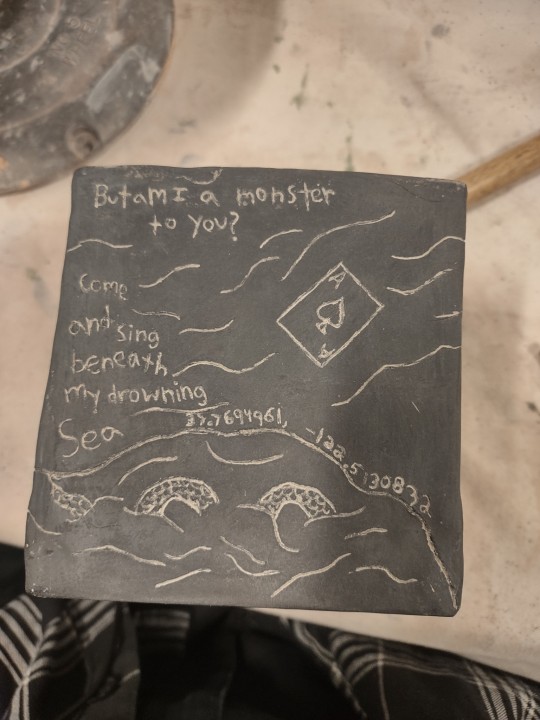 But am I a monster
to you?
Come
and sing
beneath
my drowning
Sea
37.7694961,
-122.5130832
A
A